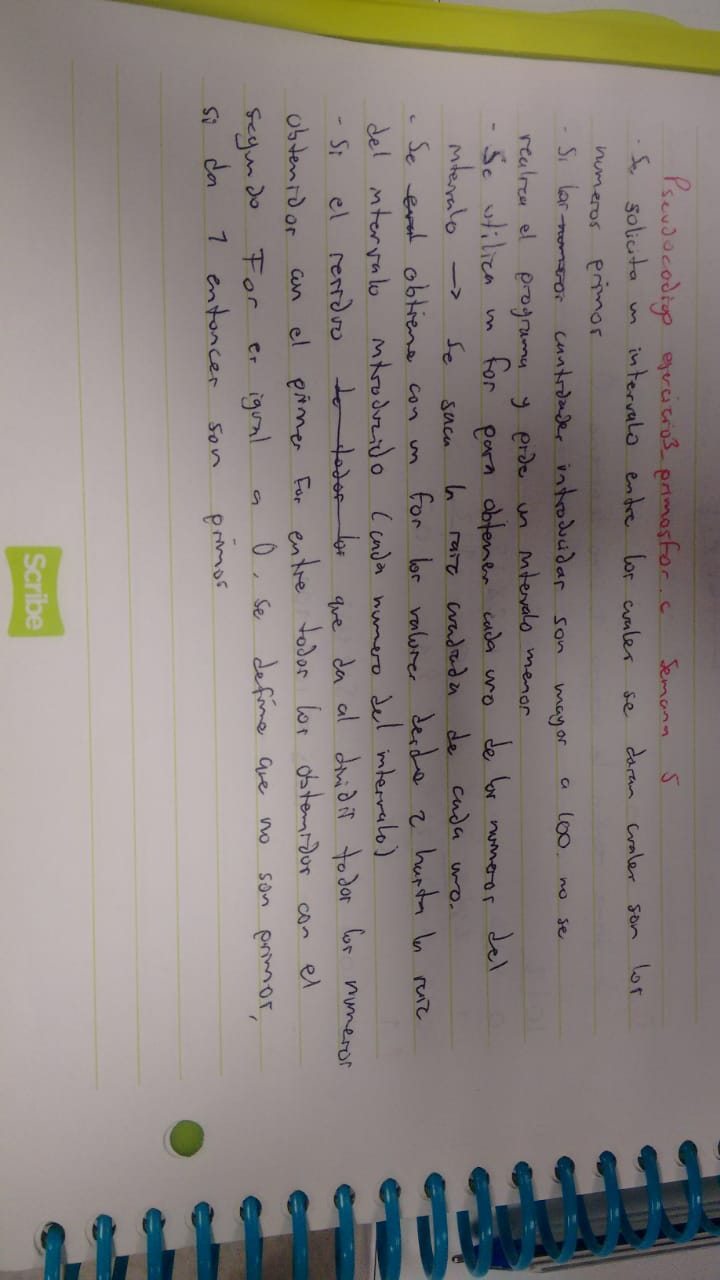 Pseudocodigo ejercicio3 primosfor.c Semana 5
- Se solicita un intervalo entre los cuales se daran cuales son los
numeros primos
- Si las numeros cantidades introducidas son mayor a 100. no se
realiza el programa y pide un intervalo menor
- Se utiliza un for para obtener cada uno de los numeros del
intervalo → Se saca la raiz cuadrada de cada uno.
- Se obtiene con un for los valores desde 2 hasta la raiz
del intervalo introducido (cada numero del intervalo)
- Si el residuo de todos los que da al dividir todos los numeros
obtenidos con el primer For entre todos los obtenidos con el
segundo For es igual a 0, se define que no son primos,
si da 1 entonces son primos
Scribe